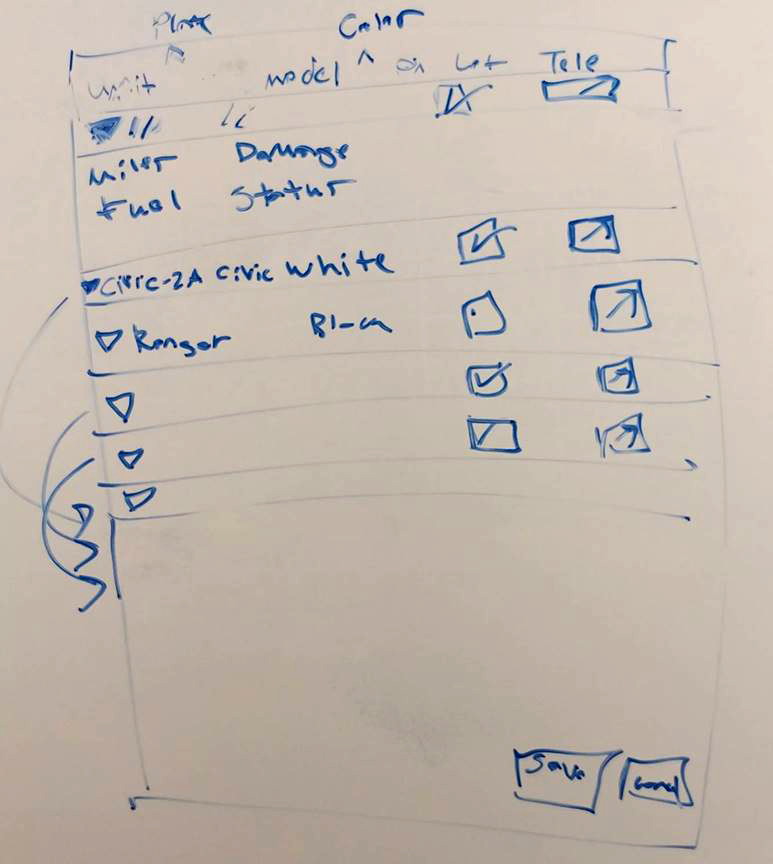 Plate Color
Unit model on Lot Tele
Miles Damage
Fuel Status
Civic-2A Civic White
Ranger
Save